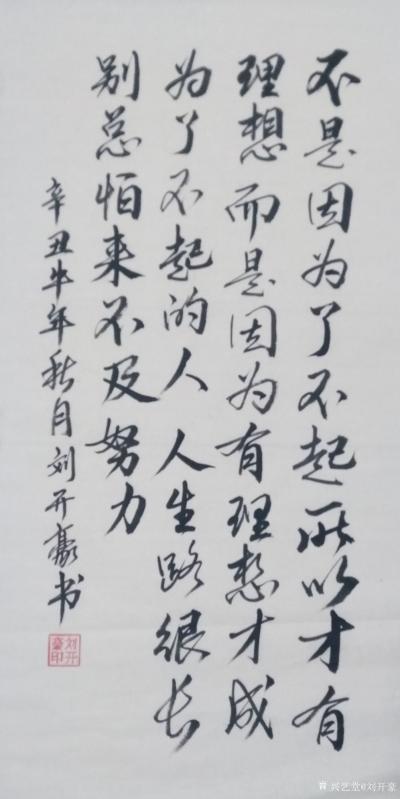 不是因为了不起所以才有
理想而是因为有理想才成
为了不起的人人生路很长
别总怕来不及努力
辛丑牛年秋月刘开豪书
刘开豪印
兴艺堂@刘开豪